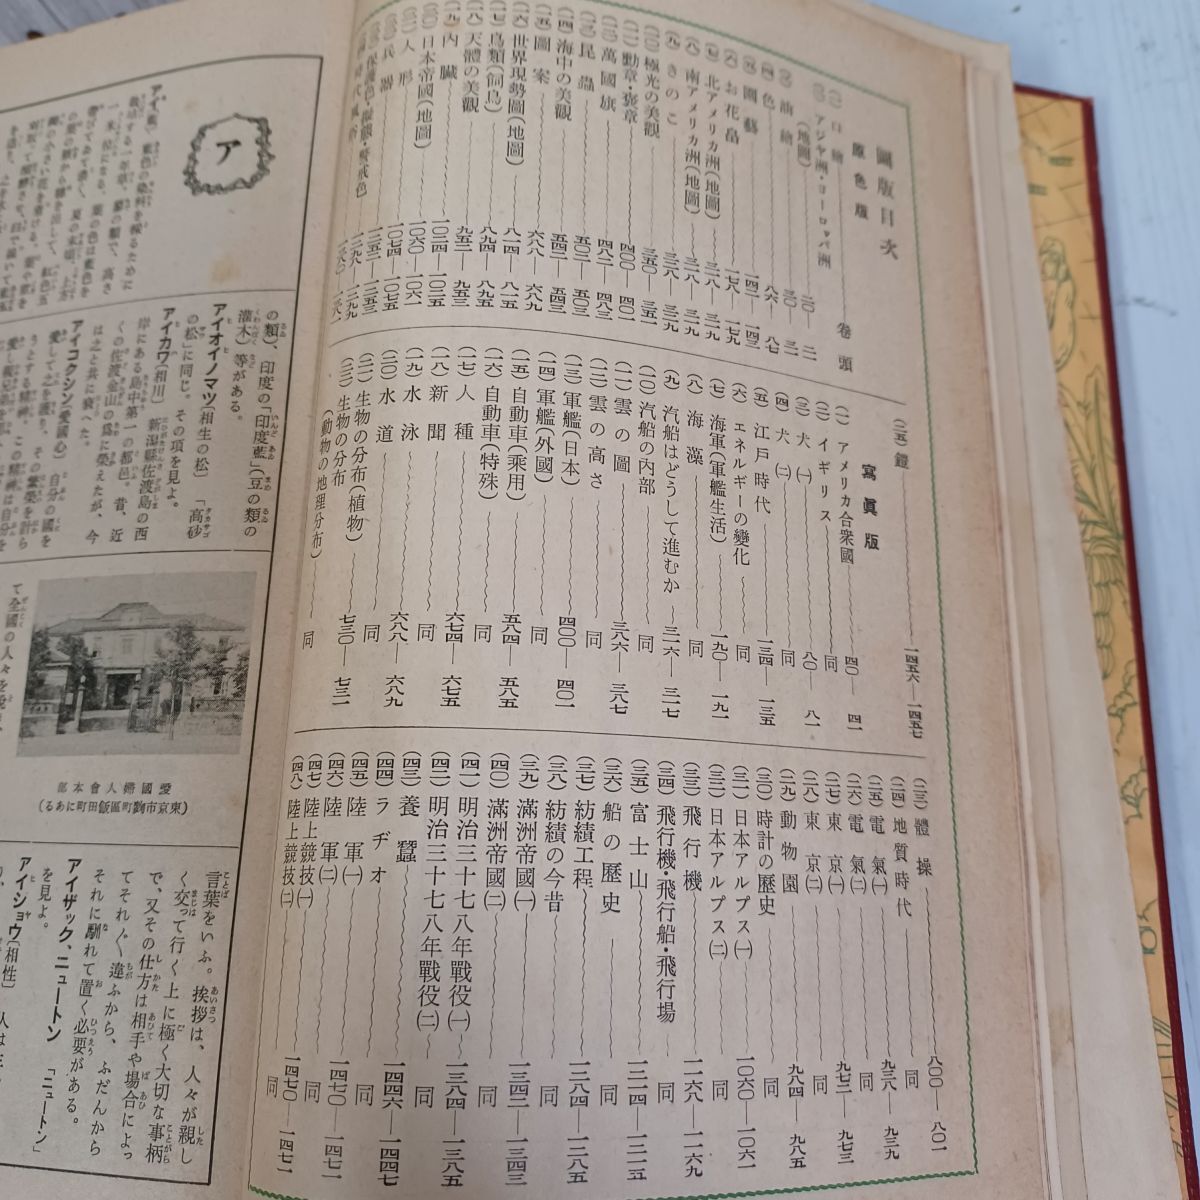 圖版目次
原色版
口繪 卷頭
(一) アジヤ洲・ヨーロッパ洲
(地圖) 二〇—二一
(三) 油繪 三〇—三一
(四) 色 八六—八七
(五) 園藝 一四二—一四三
(六) お花畠 一七八—一七九
(七) 北アメリカ洲(地圖) 三一八—三一九
(八) 南アメリカ洲(地圖) 三一八—三一九
(九) きのこ 三二八—三二九
(一〇) 極光の美觀 三五〇—三五一
(一一) 勳章・褒章 四〇〇—四〇一
(一二) 萬國旗 四八二—四八三
(一三) 昆蟲 五〇二—五〇三
(一四) 海中の美觀 五四二—五四三
(一五) 圖案 六八八—六八九
(一六) 世界現勢圖(地圖) 八一四—八一五
(一七) 鳥類(飼鳥) 八九四—八九五
(一八) 天體の美觀 九五二—九五三
(一九) 內臟 一〇二四—一〇二五
(二〇) 日本帝國(地圖) 一〇六〇—一〇六一
(二一) 人形 一〇七四—一〇七五
(二二) 兵器 一二五二—一二五三
(二三) 保護色・擬態・警戒色 一二九八—一二九九
(二五) 鎧 一四五六—一四五七
寫眞版
(一) アメリカ合衆國 四〇—四一
(二) イギリス 同
(三) 犬(一) 八〇—八一
(四) 犬(二) 同
(五) 江戸時代 一三四—一三五
(六) エネルギーの變化 同
(七) 海軍(軍艦生活) 一九〇—一九一
(八) 海藻 同
(九) 汽船はどうして進むか 三一六—三一七
(一〇) 汽船の內部 同
(一一) 雲の圖 三八六—三八七
(一二) 雲の高さ 同
(一三) 軍艦(日本) 四〇〇—四〇一
(一四) 軍艦(外國) 同
(一五) 自動車(乘用) 五八四—五八五
(一六) 自動車(特殊) 同
(一七) 人種 六七四—六七五
(一八) 新聞 同
(一九) 水泳 六八八—六八九
(二〇) 水道 同
(二一) 生物の分布(植物) 七三〇—七三一
(二二) 生物の分布
(動物の地理分布) 同
(二三) 體操 八〇〇—八〇一
(二四) 地質時代 同
(二五) 電氣(一) 九三八—九三九
(二六) 電氣(二) 同
(二七) 東京(一) 九七二—九七三
(二八) 東京(二) 同
(二九) 動物園 九八四—九八五
(三〇) 時計の歷史 同
(三一) 日本アルプス(一) 一〇六〇—一〇六一
(三二) 日本アルプス(二) 同
(三三) 飛行機 一一六八—一一六九
(三四) 飛行機・飛行船・飛行場 同
(三五) 富士山 一二一四—一二一五
(三六) 船の歷史 同
(三七) 紡績工程 一二八四—一二八五
(三八) 紡績の今昔 同
(三九) 滿洲帝國(一) 一三四二—一三四三
(四〇) 滿洲帝國(二) 同
(四一) 明治三十七八年戰役(一) 一三八四—一三八五
(四二) 明治三十七八年戰役(二) 同
(四三) 養蠶
(四四) ラヂオ 一四四六—一四四七
(四五) 陸軍(一) 同
(四六) 陸軍(二) 一四七〇—一四七一
(四七) 陸上競技(一) 同
(四八) 陸上競技(二) 一四七〇—一四七一
同
ア
アイ(藍) 藍色の染料を採るために
栽培する一年草。蓼の類で、高さ
の類)、印度の「印度藍」(豆の類の
灌木)等がある。
アイオイノマツ(相生の松) 「高砂
の松」に同じ。その項を見よ。
アイカワ(相川) 新潟縣佐渡島の西
岸にある島中第一の都邑。昔、近
くの佐渡金山の爲に榮えたが、今
は之と共に衰へた。
アイコクシン(愛國心) 自分の國を
愛して之を護り、その繁榮を計ら
うとする精神。この精神は自分を
愛國婦人會本部
(東京市麴町區飯田町にある)
て全國の人々を說
言葉をいふ。挨拶は、人々が親し
く交って行く上に極く大切な事柄
で、又その仕方は相手や場合によっ
てそれ〴〵違ふから、ふだんから
それに馴れて置く必要がある。
アイザック、ニュートン 「ニュートン」
を見よ。
アイショウ(相性)